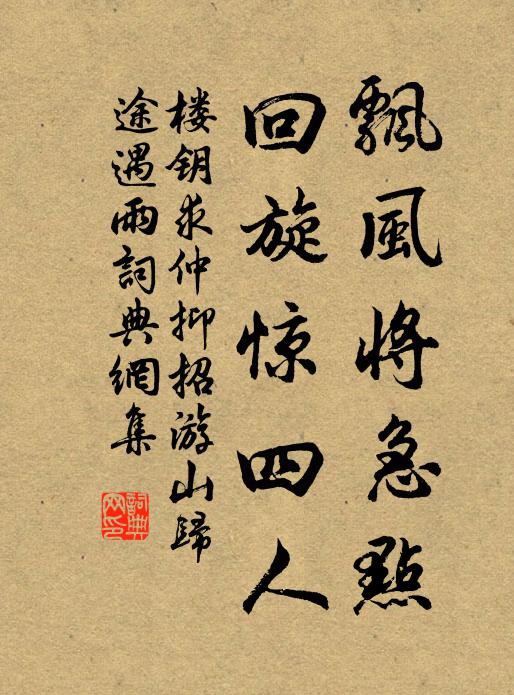 飄風将急點
回旋惊四人
楼钥求仲抑招游山歸
途遇雨詞典網集
詞典
网印